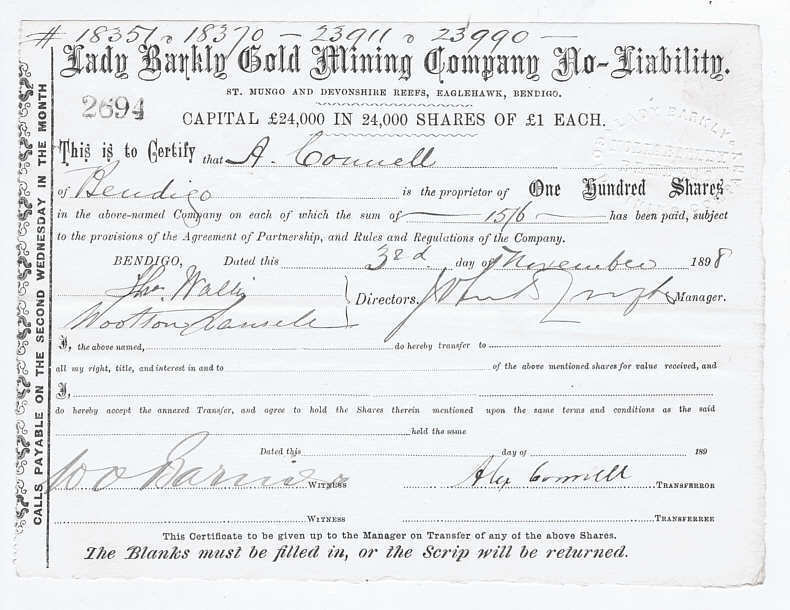 # 18351 a 18370 – 23911 a 23990 –
Lady Barkly Gold Mining Company No-Liability.
ST. MUNGO AND DEVONSHIRE REEFS, EAGLEHAWK, BENDIGO.
2694
CAPITAL £24,000 IN 24,000 SHARES OF £1 EACH.
This is to Certify that A. Connell
of Bendigo is the proprietor of One Hundred Shares
in the above-named Company on each of which the sum of 15/6 has been paid, subject
to the provisions of the Agreement of Partnership, and Rules and Regulations of the Company.
BENDIGO, Dated this 3rd day of November 1898
Directors. Manager.
I, the above named, do hereby transfer to
all my right, title, and interest in and to of the above mentioned shares for value received, and
I,
do hereby accept the annexed Transfer, and agree to hold the Shares therein mentioned upon the same terms and conditions as the said
held the same
Dated this day of 189
WITNESS Alex Connell TRANSFEROR
WITNESS TRANSFEREE
This Certificate to be given up to the Manager on Transfer of any of the above Shares.
The Blanks must be filled in, or the Scrip will be returned.
CALLS PAYABLE ON THE SECOND WEDNESDAY IN THE MONTH
LADY BARKLY